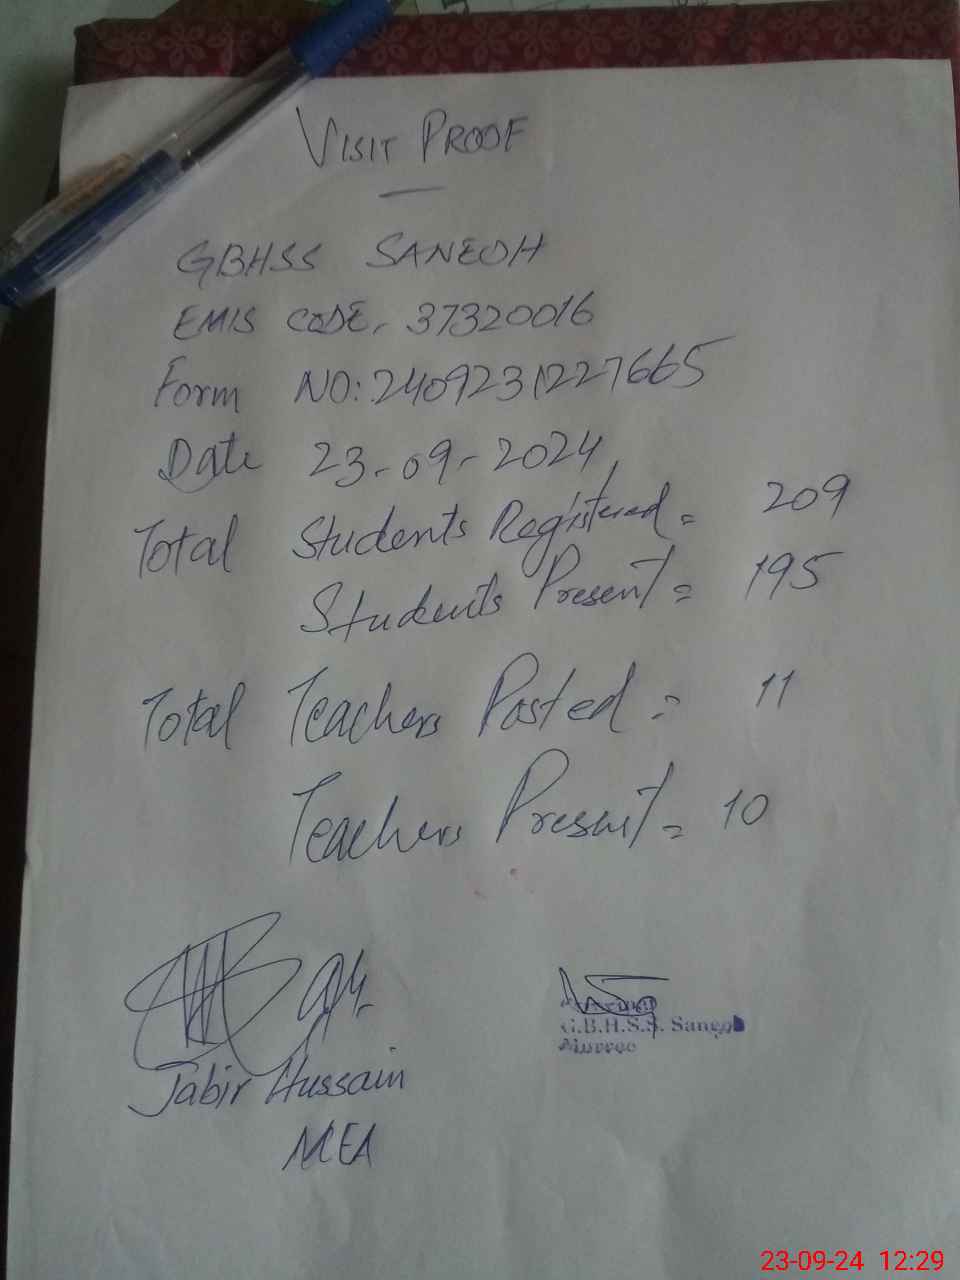 VISIT PROOF
GBHSS SANEOH
EMIS CODE. 37320016
Form NO: 2409231227665
Date 23-09-2024,
Total Students Registered = 209
Students Present = 195
Total Teachers Posted = 11
Teachers Present = 10
Jabir Hussain
MEA
G.B.H.S.S. Saneoh
23-09-24 12:29